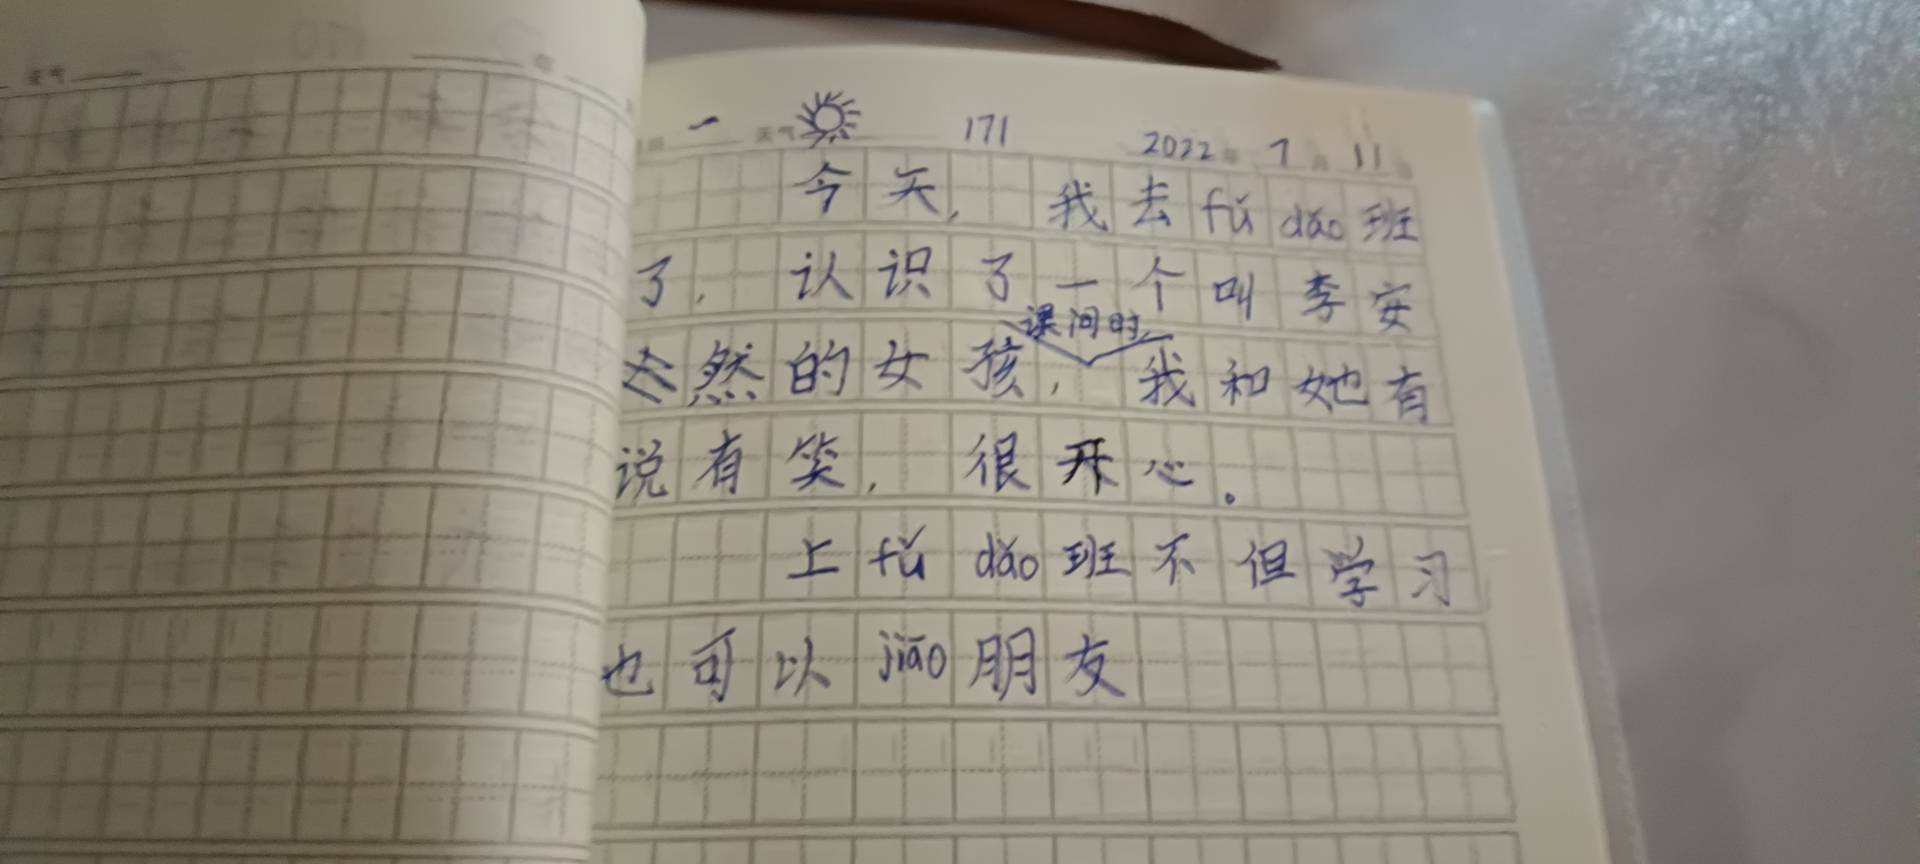 一 天气 171 2022年 7月 11日
今天，我去fǔ dǎo班
了，认识了一个叫李安
课间时，
然的女孩，我和她有
说有笑，很开心。
上fǔ dǎo班不但学习
也可以jiāo朋友
天气